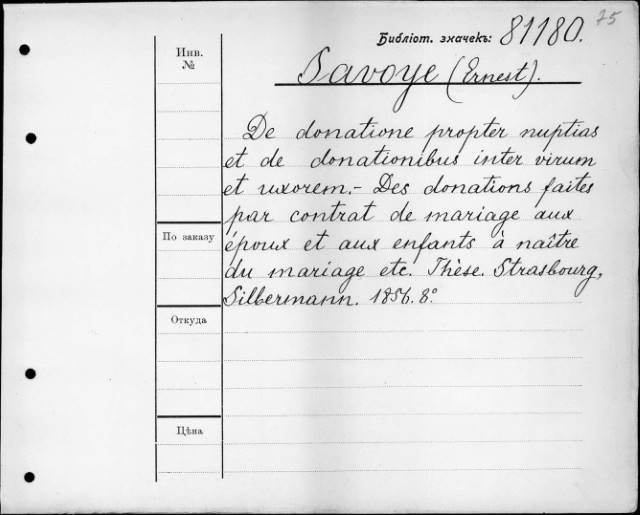 75
Библіот. значекъ: 81180.
Инв.
№
Savoye (Ernest).
De donatione propter nuptias
et de donationibus inter virum
et uxorem.- Des donations faites
par contrat de mariage aux
По заказу
époux et aux enfants à naître
du mariage etc. Thèse. Strasbourg,
Silbermann. 1856. 8°.
Откуда
Цѣна